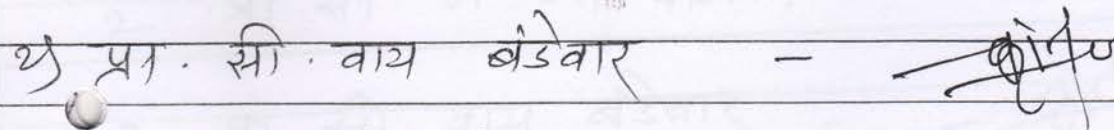 २) प्रा. सी. वाय बंडेवार -